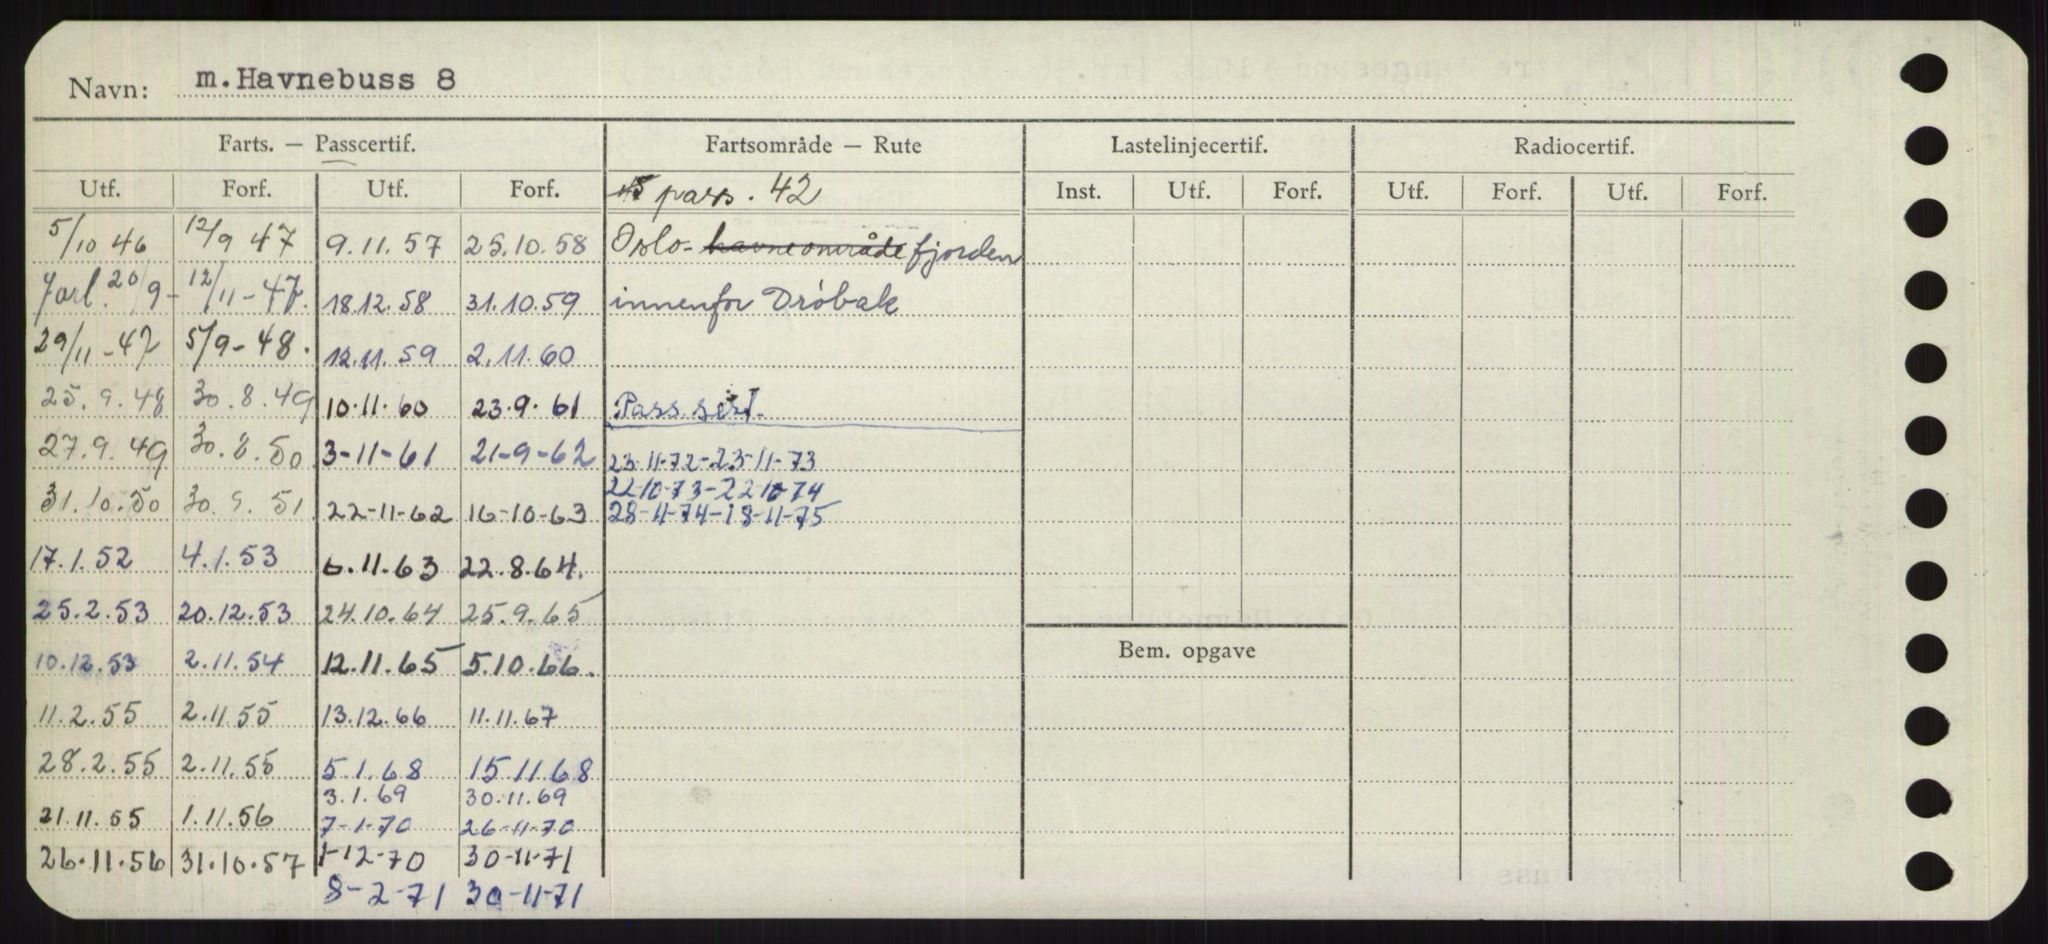 Navn: m.Havnebuss 8
Farts. — Passcertif. Fartsområde — Rute Lastelinjecertif. Radiocertif.
Utf. Forf. Utf. Forf. pass. 42 Inst. Utf. Forf. Utf. Forf. Utf. Forf.
5/10 46 12/9 47 9.11.57 25.10.58 Oslo- havneområde fjorden
forl. 20/9- 12/11-47. 18.12.58 31.10.59 innenfor Drøbak
29/11-47 5/9-48. 12.11.59 2.11.60
25.9.48 30.8.49 10.11.60 23.9.61 Pass.sert.
27.9.49 30.8.50 3-11-61 21-9-62 23-11-72-23-11-73
22-10-73-22-10-74
31.10.50 30.9.51 22-11-62 16-10-63 28-11-74-18-11-75
17.1.52 4.1.53 6.11.63 22.8.64.
25.2.53 20.12.53 24.10.64 25.9.65
10.12.53 2.11.54 12.11.65 5.10.66. Bem. opgave
11.2.55 2.11.55 13.12.66 11.11.67
28.2.55 2.11.55 5.1.68 15.11.68
3.1.69 30.11.69
21.11.55 1.11.56 7-1-70 26-11-70
26.11.56 31.10.57 1-12-70 30-11-71
8-2-71 30-11-71